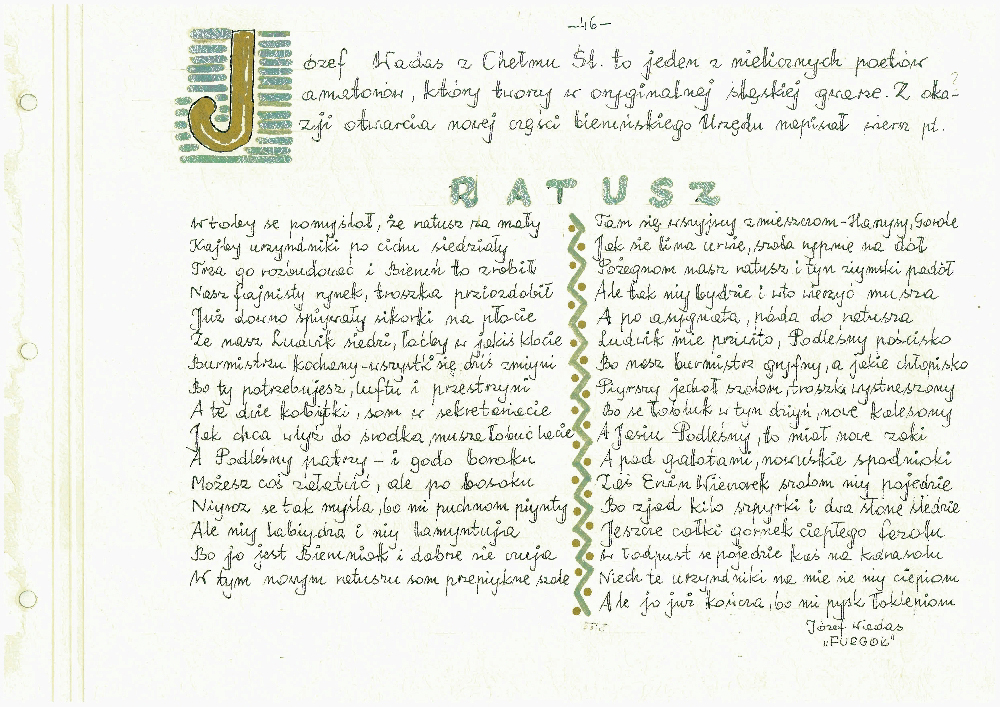 -46-
Józef Wadas z Chełmu Śl. to jeden z nielicznych poetów
amatorów, który tworzy w oryginalnej śląskiej gwarze. Z oka-
zji otwarcia nowej części bieruńskiego Urzędu napisał wiersz pt.
RATUSZ
Wtoby se pomyśloł, że ratusz za mały
Kajby urzyndniki po cichu siedziały
Trza go rozbudować i Bieruń to zrobił
Nasz fajnisty rynek, troszka prziozdobił
Już downo śpiywały sikorki na płocie
Że nasz Ludwik siedzi, łoćby w jakiś klocie
Burmistrzu kochany - wszystk się dziś zmiyni
Bo ty potrzebujesz, luftu i przestrzyni
A te dwie kobytki, som w sekretariacie
Jak chca wlyź do środka, musza łobuć lacie
A Podleśny patrzy - i godo boroku
Możesz coś załatwić, ale po bosoku
Niyroz se tak myśla, bo mi puchnom piynty
Ale niy labiydza i niy lamyntuja
Bo jo jest Bieruniok i dobrze sie czuja
W tym nowym ratuszu som przepiykne szole
Tam się wsuyjscy zmieszczom - Hanysy, Gorole
Jak sie lina urwie, szola rypnie na dół
Pożegnom nasz ratusz i tyn ziymski padół
Ale tak niy bydzie i wto wierzyć musza
A po asygnata, póda do ratusza
Ludwik mie przivito, Podleśny pościsko
Bo nasz burmistrz gryfny, a jakie chłopisko
Piyrszy jechoł szolom, troszka wystraszony
Bo se łoblyk w tyn dziyń, nowe kalesony
A Jasiu Podleśny, to mioł nowe zoki
A pod galotami, nowuśkie spodnioki
Zaś Erwin Wieczorek szolom niy pojedzie
Bo zjod kilo szpyrki i dwa słone śledzie
Jeszcze całki górnek ciepłego fazolu
W łodpust se pojedzie kaś na karasolu
Niech te urzyndniki na mie sie niy ciepiom
Ale jo już kończa, bo mi pysk łoklepiom
Józef Wadas
„FURGOŁ"